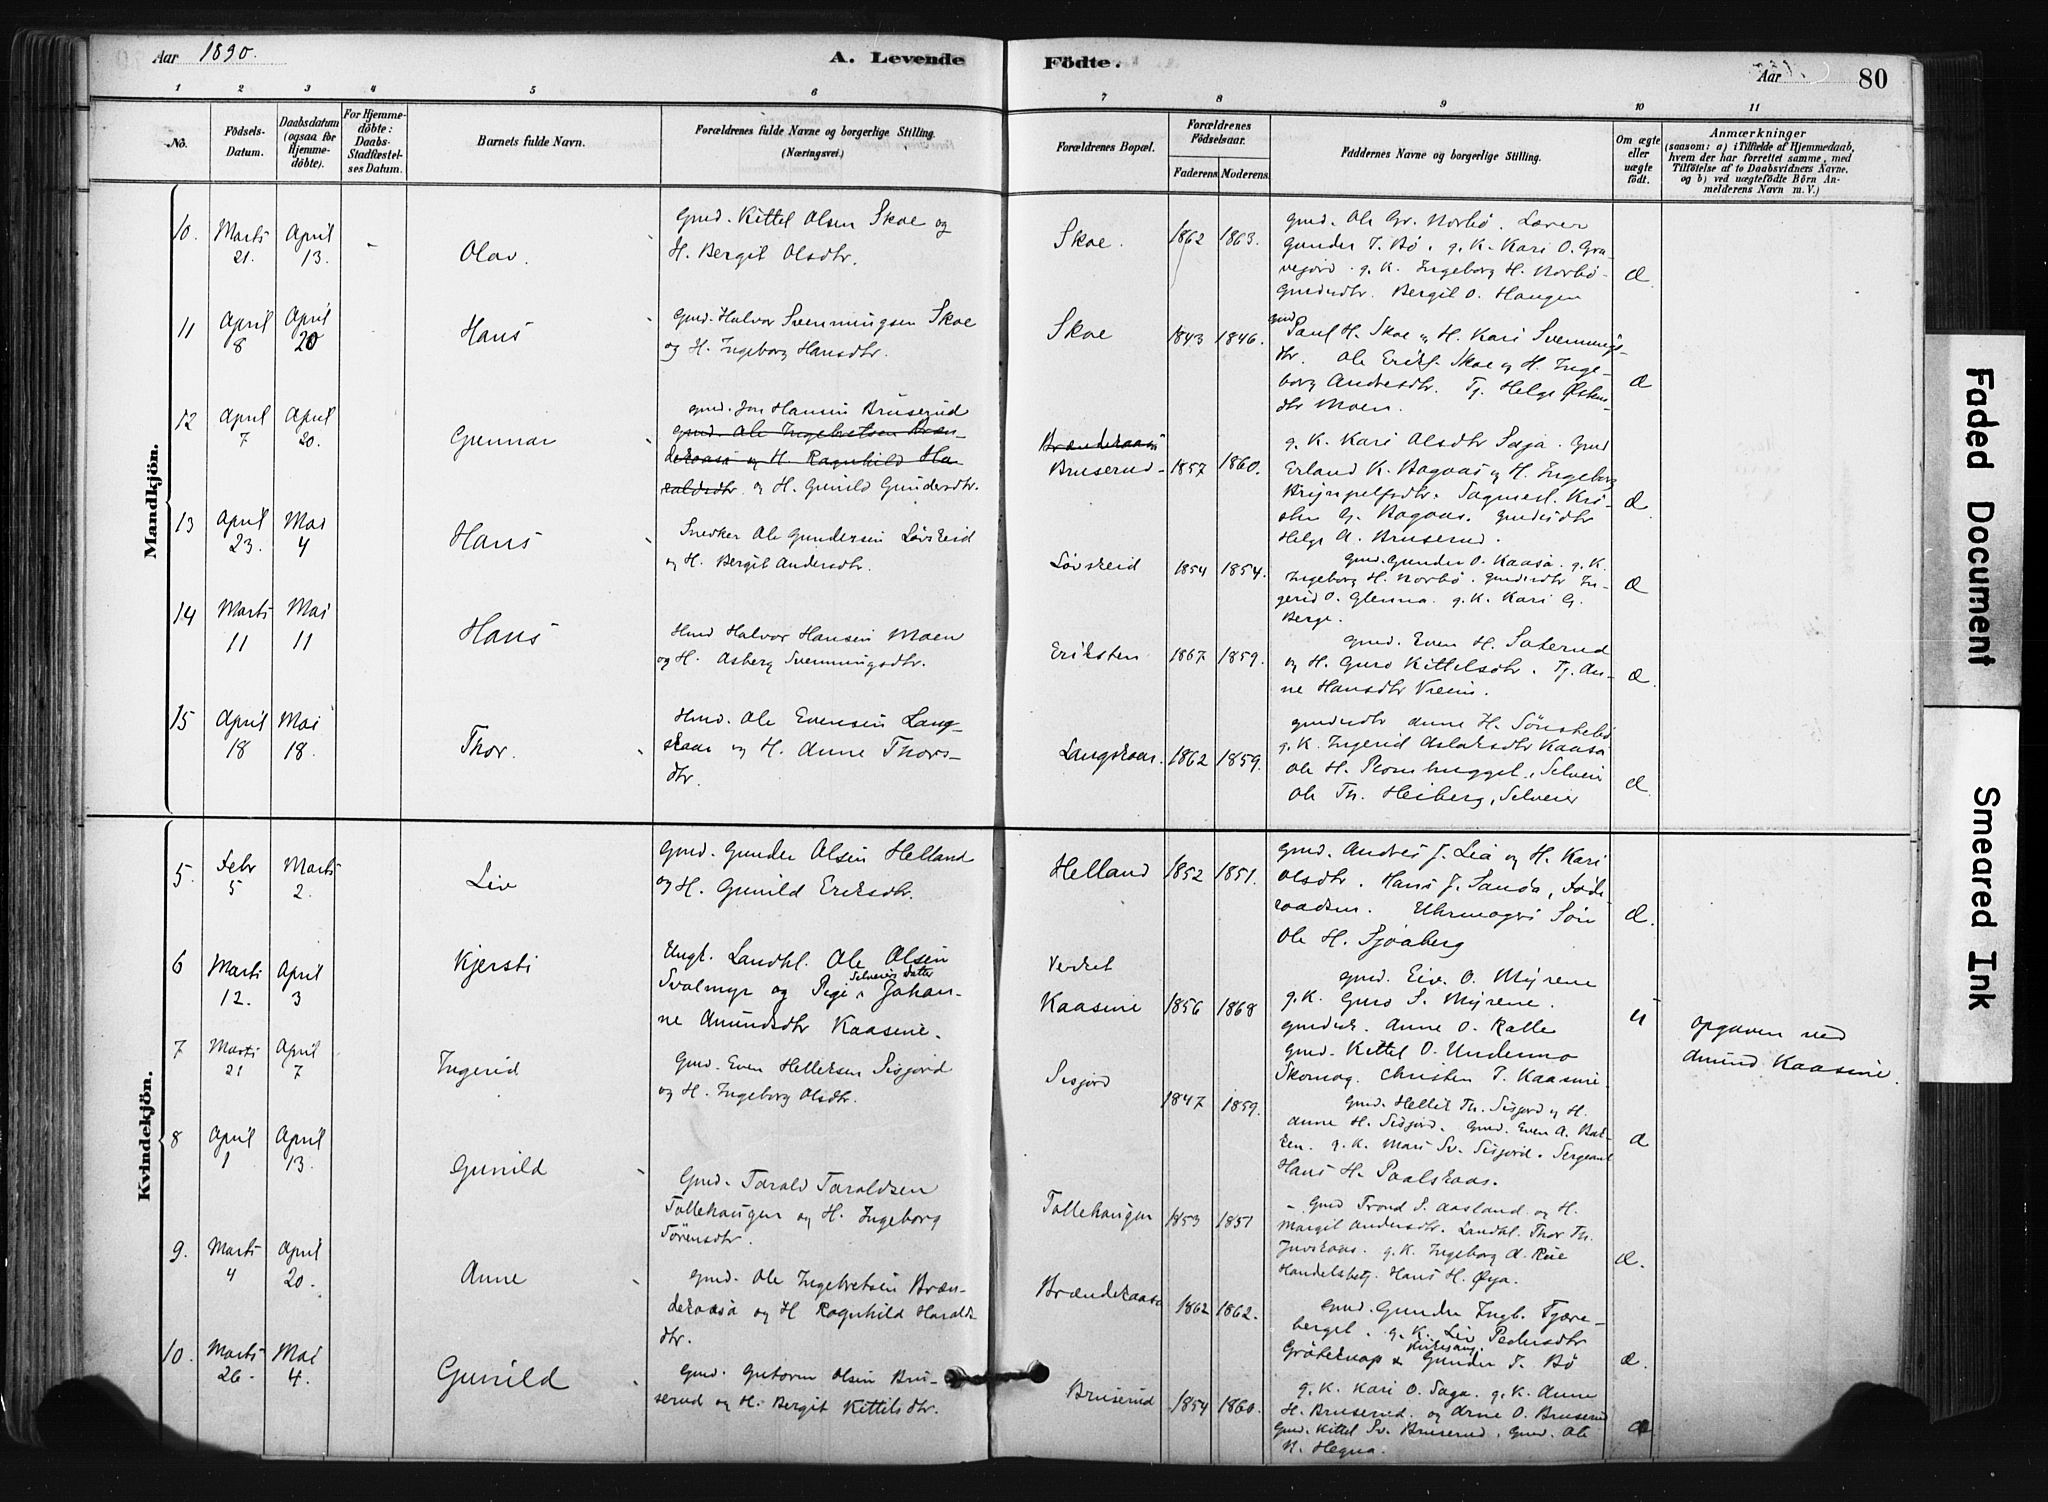 Aar 1890.
A. Levende
Födte.
Aar
80
1 2 3 4 5 6 7 8 9 10 11
No.
Födsels-Datum.
Daabsdatum (ogsaa for Hjemmedöbte).
For Hjemmedöbte: Daabs-Stadfæstelses Datum.
Barnets fulde Navn.
Forældrenes fulde Navne og borgerlige Stilling.
(Næringsvei.)
Forældrenes Bopæl.
Forældrenes Födselsaar.
Faderens. Moderens.
Faddernes Navne og borgerlige Stilling.
Om ægte eller uægte födt.
Anmærkninger
(saasom: a) i Tilfælde af Hjemmedaab, hvem der har forrettet samme, med Tilföielse af to Daabsvidners Navne, og b) ved uægtefödte Börn Anmelderens Navn m. V.)
Mandkjön.
10. Marts 21. April 13. - Olav.
Gmd. Kittel Olsen Skoe og
H. Bergit Olsdtr.
Skoe. 1862 1863.
Gmd. Ole Gr. Norbø. Lærer
Gunder T. Bø. g. K. Kari O. Gra-
vejord. g. K. Ingeborg H. Norbø.
Gmdsdtr. Bergit O. Haugen
Æ
11 April 8 April 20 Hans
Gmd. Halvor Svenningsen Skoe
og H. Ingeborg Hansdtr.
Skoe 1843 1846.
Gmd.
Paul H. Skoe og H. Kari Svennings-
dtr. Ole Eriks. Skoe og H. Inge-
borg Andresdtr. Tj. Helge Østens-
dtr Moen.
Æ
12 April 7 April 20. Gunnar
Gmd. Jon Hansen Bruserud
Gmd. Ole Ingebretsen Bræn-
dekaasa og H. Ragnhild Ha-
raldsdtr og H. Gunild Gundersdtr.
Brændekaasa
Bruserud - 1857 1860.
g. K. Kari Olsdtr Saga. Gmd
Erland K. Bagaas og H. Ingeborg
Helge A. Bruserud.
Æ.
13 April 23. Mai 4 Hans
Snedker Ole Gundersen Løvskeid
og H. Bergit Andersdtr.
Løvskeid 1854 1854.
Gmd. Gunder O. Kaasa. g. K.
Ingeborg H. Norbø. Gmdsdtr In-
gerid O. Glenna. g. K. Kari G.
Berge.
Æ
14 Marts 11 Mai 11 Hans
Hmd Halvor Hansen Moen
og H. Asberg Svenningsdtr.
Eriksten 1867 1859.
Gmd. Even H. Saterud
og H. Guro Kittelsdtr. Tj. An-
ne Hansdtr Vreim.
Æ.
15 April 18 Mai 18. Thor.
Hmd. Ole Evensen Lang-
skaas og H. Anne Thors-
dtr.
Langskaas. 1862 1859.
Gmdsdtr Anne H. Sønstebø
g. K. Ingerid Aslaksdtr Kaasa
Ole H. Plomhugget, Selveier
Ole Th. Heiberg, Selveier
Æ.
Kvindekjön.
5. Febr 5 Marts 2. Liv
Gmd. Gunder Olsen Helland
og H. Gunild Eriksdtr.
Helland 1852 1851.
Gmd. Andres J. Lia og H. Kari
Olsdtr. Hans J. Sanøa, Føde-
raadsm. Uhrmagers Søn
Ole H. Sjøaberg
Æ.
6 Marts 12. April 3 Kjersti
Ungk. Landhl. Ole Olsen
Svalmyr og Pige, Selveiers Datter Johan-
ne Amundsdtr Kaasene.
Verket
Kaasene 1856 1868
Gmd. Eiv. O. Myrene
g. K. Guro S. Myrene.
Gmdsk. Anne O. Kalle
Gmd. Kittel O. Undermo
Skomag. Christen T. Kaasene
U
Opgaven ved
Amund Kaasene.
7 Marts 21 April 7 Ingerid
Gmd. Even Helleksen Sisjord
og H. Ingeborg Olsdtr.
Sisjord 1847 1859.
Gmd. Hellek Th. Sisjord og H.
Anne H. Sisjord. Gmd. Even A. Bak-
ken. g. K. Mari Sv. Sisjord. Sergeant
Hans H. Paalskaas.
Æ
8 April 1 April 13. Gunild
Gmd. Tarald Taraldsen
Tollehaugen og H. Ingeborg
Tørensdtr.
Tollehaugen 1853 1851
Gmd Trond S. Aasland og H.
Margit Andersdtr. Landhl. Thor Th.
Juvskaas. g. K. Ingeborg A. Rue
Handelsbetj. Hans H. Øya.
Æ.
9. Marts 4 April 20. Anne
Gmd. Ole Ingebretsen Bræn-
dekaasa og H Ragnhild Haralds-
dtr.
Brændekaasa 1862 1862.
Gmd. Gunder Ingb. Tjære-
berget. g. K. Liv Pedersdtr
Grøteknap & Kirkesang. Gunder T. Bø
Æ.
10. Marts 26. Mai 4. Gunild
Gmd. Gutorm Olsen Bru-
serud og H. Bergit Kittilsdtr.
Bruserud 1854 1860.
g. K. Kari O. Saga. g. K. Anne
H. Bruserud. og Arne O. Bruserud
Gmd. Kittel Sv. Bruserud. Gmd. Ole
N. Hegna.
Æ
Faded Document
Smeared Ink